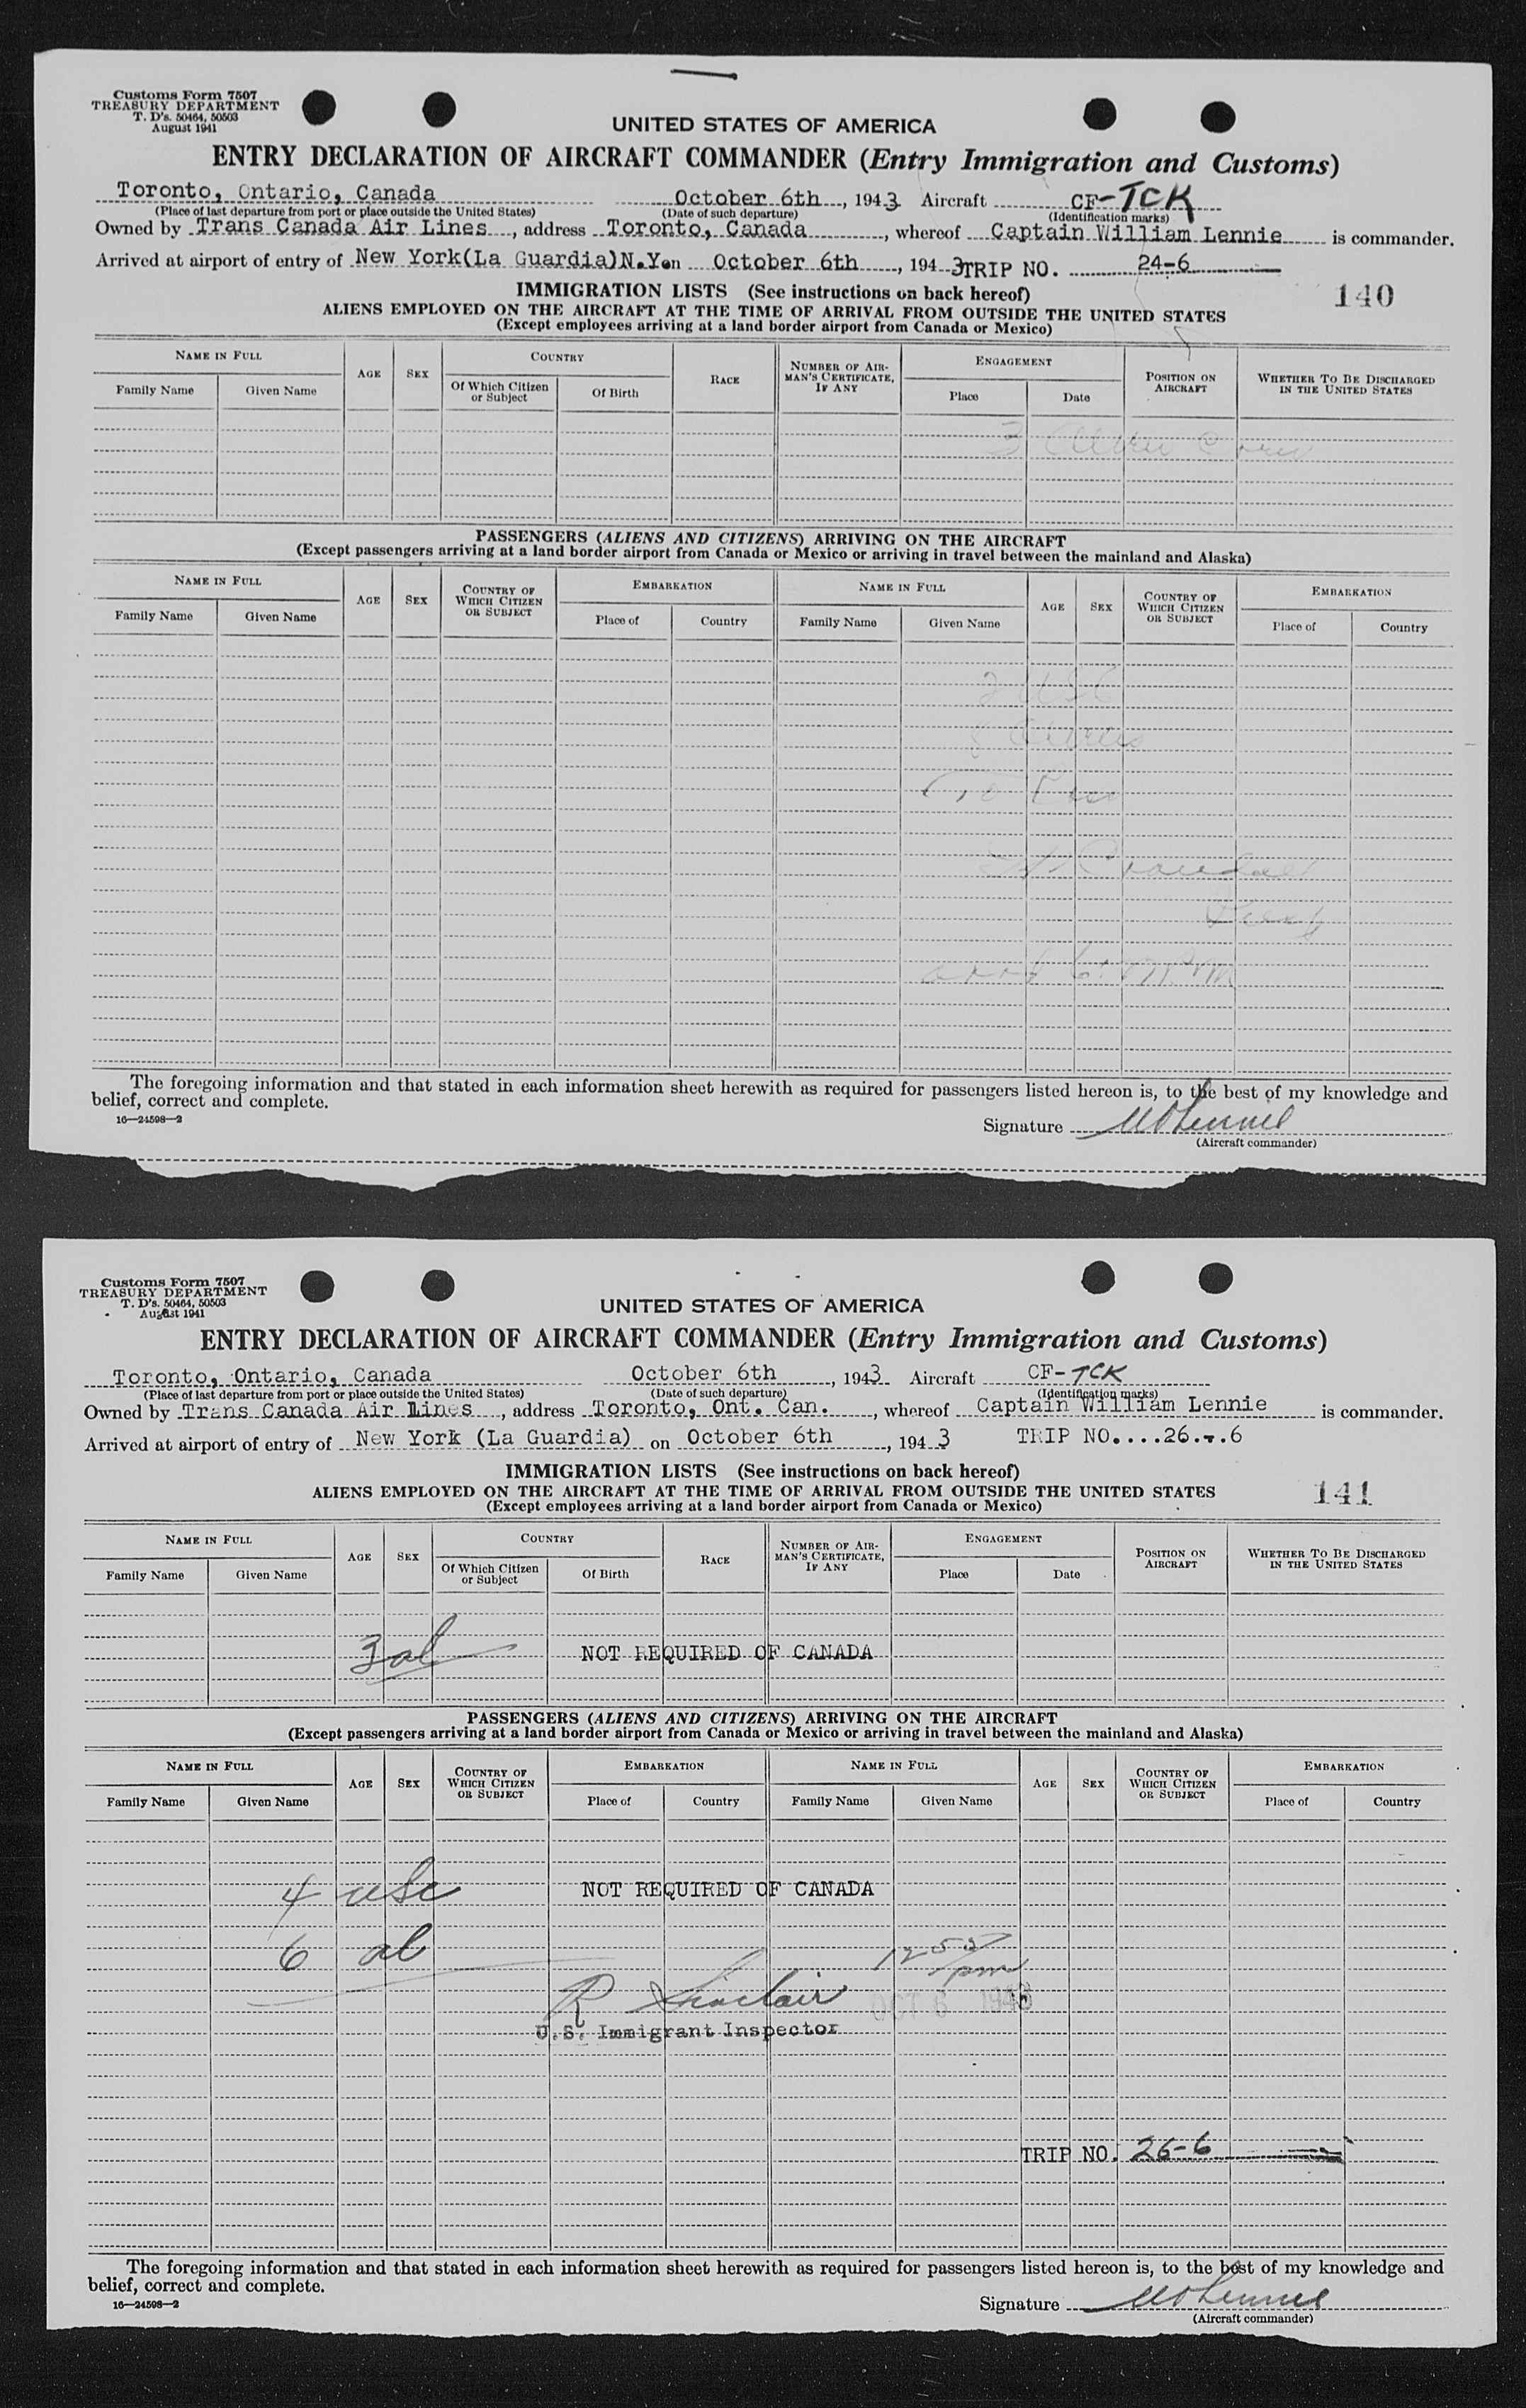 Customs Form 7507
TREASURY DEPARTMENT
T. D's. 50464, 50503
August 1941
UNITED STATES OF AMERICA
ENTRY DECLARATION OF AIRCRAFT COMMANDER (Entry Immigration and Customs)
Toronto, Ontario, Canada October 6th, 1943 Aircraft CF-TCK
(Place of last departure from port or place outside the United States) (Date of such departure) (Identification marks)
Owned by Trans Canada Air Lines, address Toronto, Canada, whereof Captain William Lennie is commander.
Arrived at airport of entry of New York(La Guardia)N.Y.on October 6th, 1943 TRIP NO. 24-6
IMMIGRATION LISTS (See instructions on back hereof)
140
ALIENS EMPLOYED ON THE AIRCRAFT AT THE TIME OF ARRIVAL FROM OUTSIDE THE UNITED STATES
(Except employees arriving at a land border airport from Canada or Mexico)
NAME IN FULL AGE SEX COUNTRY RACE NUMBER OF AIRMAN'S CERTIFICATE, IF ANY ENGAGEMENT POSITION ON AIRCRAFT WHETHER TO BE DISCHARGED IN THE UNITED STATES
Family Name Given Name Of Which Citizen or Subject Of Birth Place Date
3
PASSENGERS (ALIENS AND CITIZENS) ARRIVING ON THE AIRCRAFT
(Except passengers arriving at a land border airport from Canada or Mexico or arriving in travel between the mainland and Alaska)
NAME IN FULL AGE SEX COUNTRY OF WHICH CITIZEN OR SUBJECT EMBARKATION NAME IN FULL AGE SEX COUNTRY OF WHICH CITIZEN OR SUBJECT EMBARKATION
Family Name Given Name Place of Country Family Name Given Name Place of Country
The foregoing information and that stated in each information sheet herewith as required for passengers listed hereon is, to the best of my knowledge and
belief, correct and complete.
16—24598—2
Signature
(Aircraft commander)
Customs Form 7507
TREASURY DEPARTMENT
T. D's. 50464, 50503
August 1941
UNITED STATES OF AMERICA
ENTRY DECLARATION OF AIRCRAFT COMMANDER (Entry Immigration and Customs)
Toronto, Ontario, Canada October 6th, 1943 Aircraft CF-TCK
(Place of last departure from port or place outside the United States) (Date of such departure) (Identification marks)
Owned by Trans Canada Air Lines, address Toronto, Ont. Can., whereof Captain William Lennie is commander.
Arrived at airport of entry of New York (La Guardia) on October 6th, 1943 TRIP NO....26.-.6
IMMIGRATION LISTS (See instructions on back hereof)
141
ALIENS EMPLOYED ON THE AIRCRAFT AT THE TIME OF ARRIVAL FROM OUTSIDE THE UNITED STATES
(Except employees arriving at a land border airport from Canada or Mexico)
NAME IN FULL AGE SEX COUNTRY RACE NUMBER OF AIRMAN'S CERTIFICATE, IF ANY ENGAGEMENT POSITION ON AIRCRAFT WHETHER TO BE DISCHARGED IN THE UNITED STATES
Family Name Given Name Of Which Citizen or Subject Of Birth Place Date
3 al NOT REQUIRED OF CANADA
PASSENGERS (ALIENS AND CITIZENS) ARRIVING ON THE AIRCRAFT
(Except passengers arriving at a land border airport from Canada or Mexico or arriving in travel between the mainland and Alaska)
NAME IN FULL AGE SEX COUNTRY OF WHICH CITIZEN OR SUBJECT EMBARKATION NAME IN FULL AGE SEX COUNTRY OF WHICH CITIZEN OR SUBJECT EMBARKATION
Family Name Given Name Place of Country Family Name Given Name Place of Country
4 USC NOT REQUIRED OF CANADA
6 al
1255 pm
R Sinclair OCT 6 1943
U.S. Immigrant Inspector
TRIP NO. 26-6
The foregoing information and that stated in each information sheet herewith as required for passengers listed hereon is, to the best of my knowledge and
belief, correct and complete.
16—24598—2
Signature
(Aircraft commander)